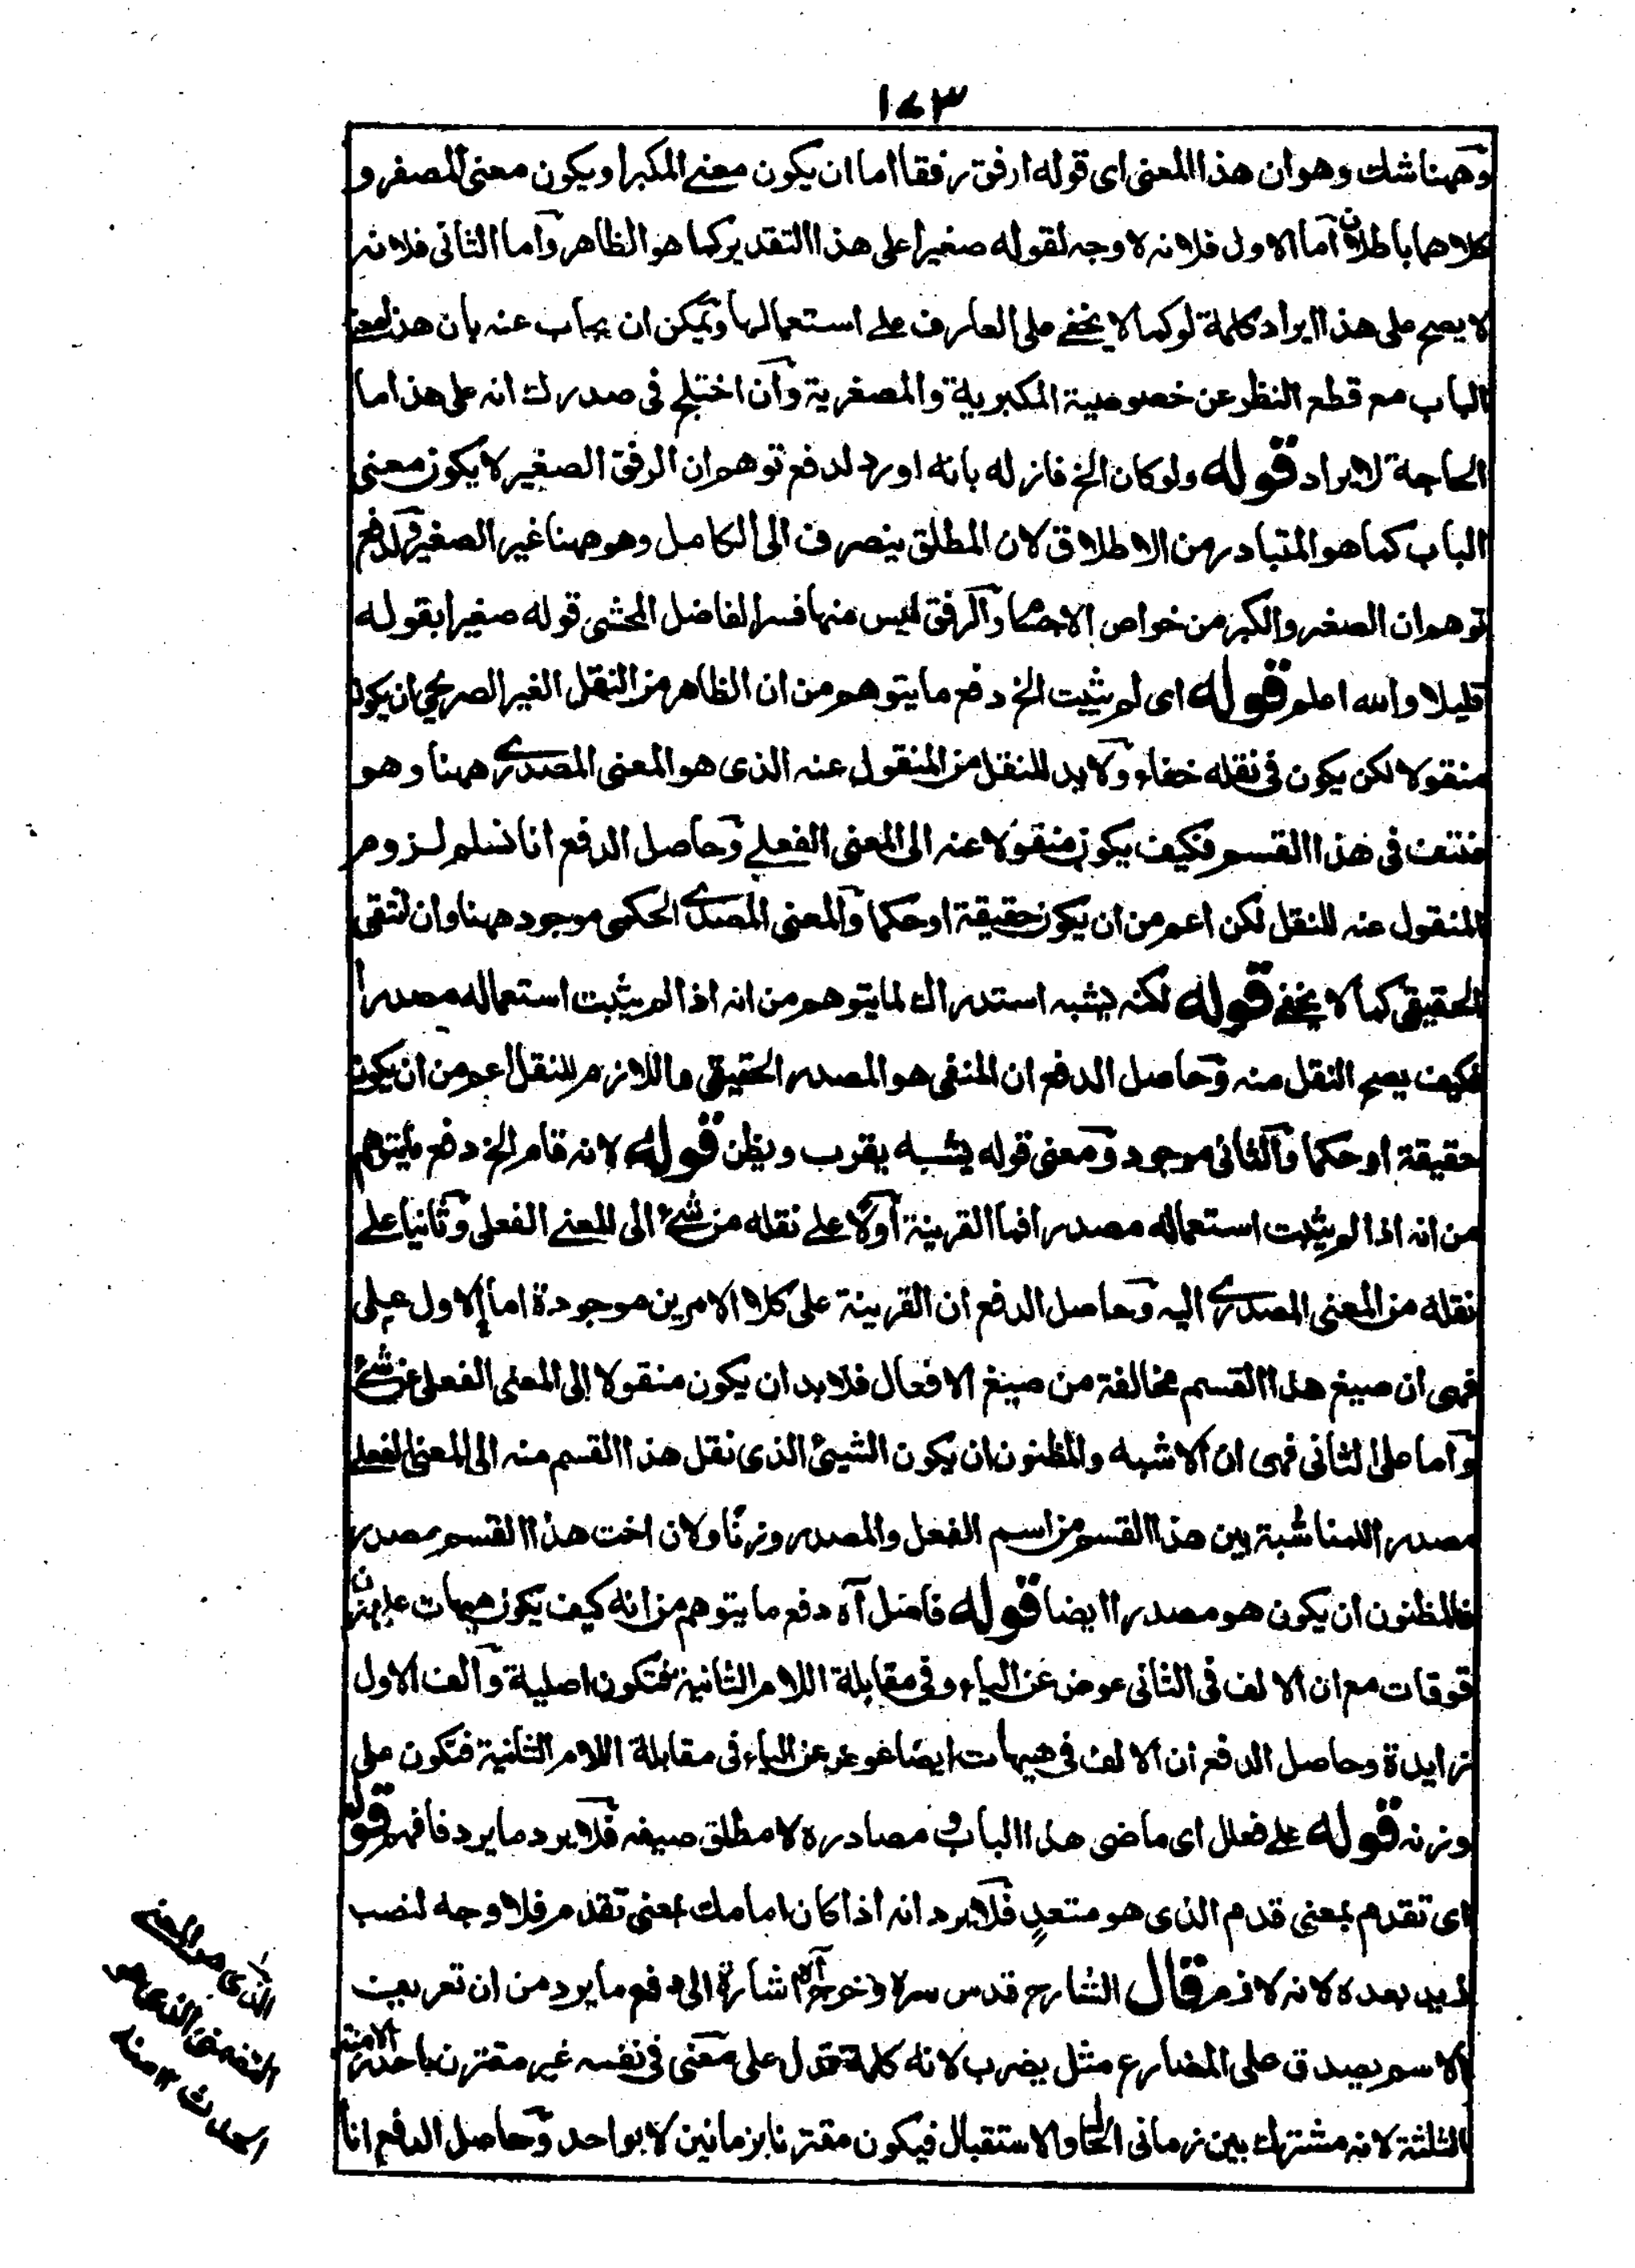 ١٧٣
وههنا شك وهو ان هذا المعنى اى قوله ارفق رفقا اما ان يكون معنى المكبر او يكون معنى للمصغر و
كلاهما باطلان اما الاول فلانه لا وجه لقوله صغيرا على هذا التقدير كما هو الظاهر واما الثانى فلانه
لا يصح على هذا ايراد كلمة لو كما لا يخفى على العارف على استعمالها ويمكن ان يجاب عنه بان هذا معنى
الباب مع قطع النظر عن خصوصية المكبرية والمصغرية وان اختلج فى صدرك انه على هذا ما
الحاجة لايراد قوله ولو كان الخ فازله بانه اورد لدفع توهم ان الرفق الصغير لا يكون معنى
الباب كما هو المتبادر من الاطلاق لان المطلق ينصرف الى الكامل وهو ههنا غير الصغير ولدفع
توهم ان الصغر والكبر من خواص الاجسام والرفق ليس منها فسر الفاضل المحشى قوله صغيرا بقوله
قليلا والله اعلم قوله اى لم يثبت الخ دفع ما يتوهم من ان الظاهر من النقل الغير الصريحى ان يكون
منقولا لكن يكون فى نقله خفاء ولا بد للنقل من المنقول عنه الذى هو المعنى المصدرى ههنا وهو
منتف فى هذا القسم فكيف يكون منقولا عنه الى المعنى الفعلى وحاصل الدفع انا نسلم لزوم
المنقول عنه للنقل لكن اعم من ان يكون حقيقة او حكما والمعنى المصدرى الحكمى موجود ههنا وان انتقى
الحقيقى كما لا يخفى قوله لكنه يشبه استدراك لما يتوهم من انه اذا لم يثبت استعماله مصدرا
فكيف يصح النقل منه وحاصل الدفع ان المنفى هو المصدر الحقيقى واللازم للنقل اعم من ان يكون
حقيقة او حكما والثانى موجود ومعنى قوله يشبه يقرب ويظن قوله لانه قام الخ دفع ما يتوهم
من انه اذا لم يثبت استعماله مصدرا فما القرينة اولا على نقله من شئ الى المعنى الفعلى وثانيا على
نقله من المعنى المصدرى اليه وحاصل الدفع ان القرينة على كلا الامرين موجودة اما الاول على
فهى ان صيغ هذا القسم مخالفة من صيغ الافعال فلا بد ان يكون منقولا الى المعنى الفعلى عن شئ
واما على الثانى فهى ان الاشبه والمظنون ان يكون الشيئ الذى نقل هذا القسم منه الى المعنى الفعلى
مصدرا للمناسبة بين هذا القسم من اسم الفعل والمصدر وزنا ولان اخت هذا القسم مصدر
فالمظنون ان يكون هو مصدرا ايضا قوله فاصل آه دفع ما يتوهم من انه كيف يكون هيهات على زن
قوقات مع ان الالف فى الثانى عوض عن الياء وفى مقابلة اللام الثانية فتكون اصلية والف الاول
زايدة وحاصل الدفع ان الالف فى هيهات ايضا عوض عن الياء فى مقابلة اللام الثانية فتكون على
وزنه قوله على فعلل اى ماضى هذا الباب و مصادره لا مطلق صيغه فلا يرد ما يرد فافهم قوله
اى تقدم بمعنى قدم الذى هو متعدٍ فلا يرد انه اذا كان امامك بمعنى تقدم فلا وجه لنصب
زيد بعده لانه لازم قال الشارح قدس سره وخرج آه اشارة الى دفع ما يرد من ان تعريف
الاسم يصدق على المضارع مثل يضرب لانه كلمة تدل على معنى فى نفسه غير مقترن باحد الازمنة
الثلثة لانه مشترك بين زمانى الحال والاستقبال فيكون مقترنا بزمانين لا بواحد وحاصل الدفع انا
الذى هو المعنى
التضمنى الذى هو
الحدث ١٢ منه